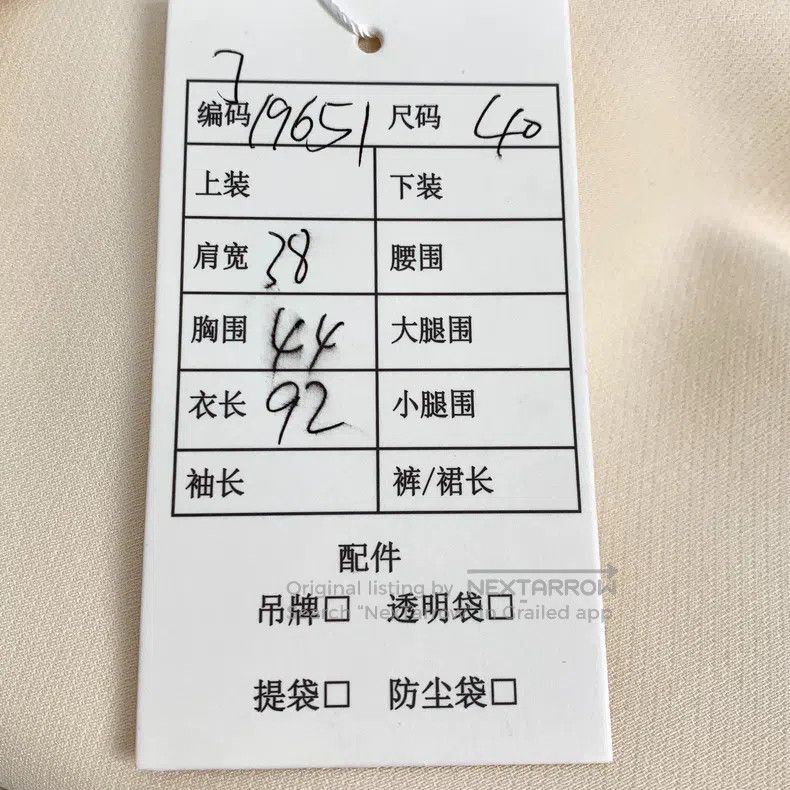 编码 19651 尺码 40
上装 下装
肩宽 38 腰围
胸围 44 大腿围
衣长 92 小腿围
袖长 裤/裙长
配件
Original listing by NEXTARROW
吊牌□ 透明袋□
Search "Nextarrow" on Grailed app
提袋□ 防尘袋□